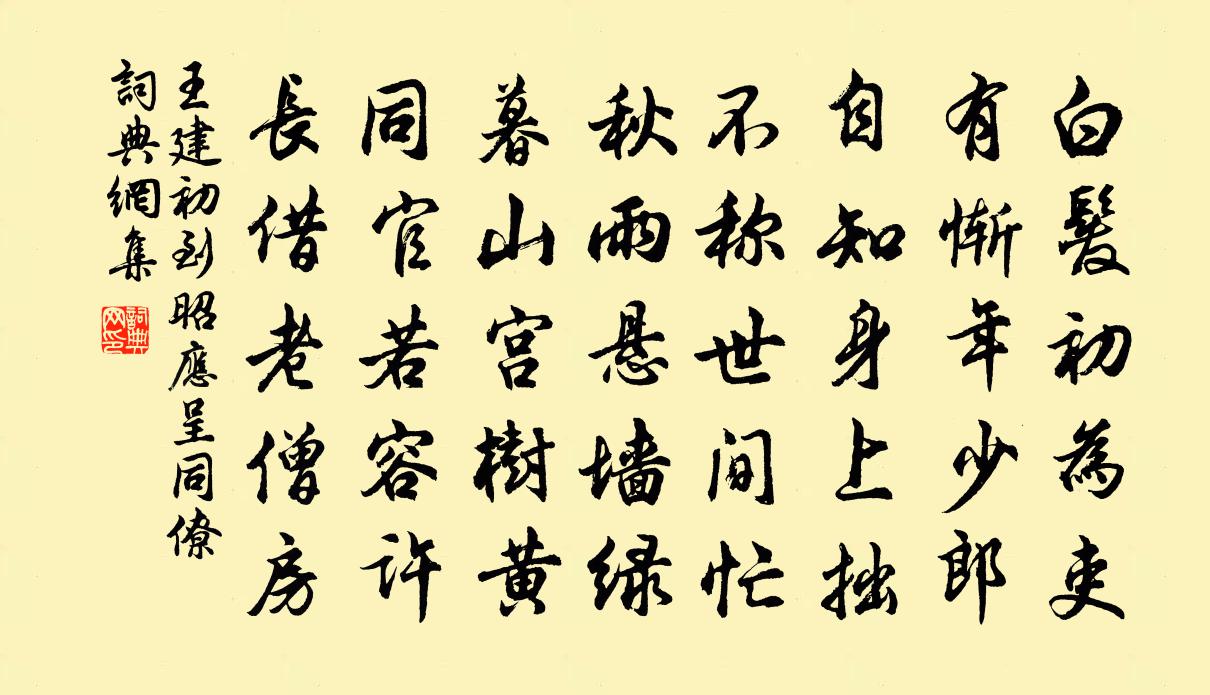 白髮初為吏
有慚年少郎
自知身上拙
不称世间忙
秋雨悬墙绿
暮山宫樹黄
同官若容许
長借老僧房
王建初到昭應呈同僚
詞典網集
詞典网印